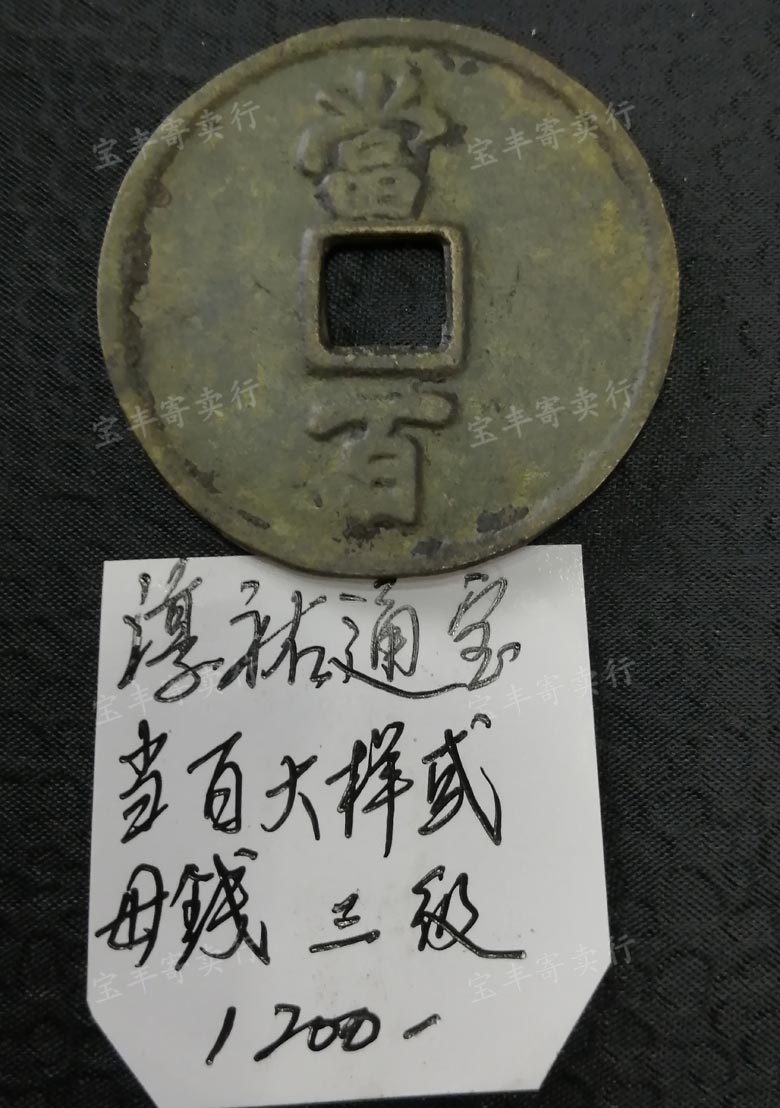 當
百
淳祐通宝
当百大样式
母錢 三级
1200-
宝丰寄卖行
宝丰寄卖行
宝丰寄卖行
宝丰寄卖行
宝丰寄卖行
宝丰寄卖行
宝丰寄卖行
宝丰寄卖行